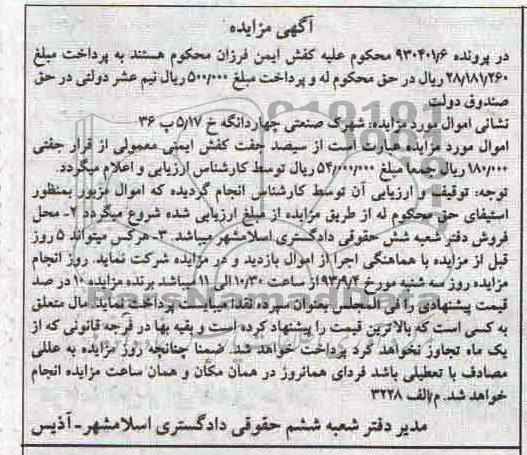 آگهی مزایده
در پرونده ۹۳۰۴۰۱/۶ محکوم علیه کفش ایمن فرزان محکوم هستند به پرداخت مبلغ
۲۸/۱۸۱/۲۶۰ ریال در حق محکوم له و پرداخت مبلغ ۵۰۰/۰۰۰ ریال نیم عشر دولتی در حق
صندوق دولت
نشانی اموال مورد مزایده: شهرک صنعتی چهاردانگه خ ۵/۱۷ پ ۳۶
اموال مورد مزایده عبارت است از سیصد جفت کفش ایمنی معمولی از قرار جفتی
۱۸۰/۰۰۰ ریال جمعا مبلغ ۵۴/۰۰۰/۰۰۰ ریال توسط کارشناس ارزیابی و اعلام میگردد.
توجه: توقیف و ارزیابی آن توسط کارشناس انجام گردیده که اموال مزبور بمنظور
استیفای حق محکوم له از طریق مزایده از مبلغ ارزیابی شده شروع میگردد ۲- محل
فروش دفتر شعبه شش حقوقی دادگستری اسلامشهر میباشد. ۳- هرکس میتواند ۵ روز
قبل از مزایده با هماهنگی اجرا از اموال بازدید و در مزایده شرکت نماید. روز انجام
مزایده روز سه شنبه مورخ ۹۳/۹/۴ از ساعت ۱۰/۳۰ الی ۱۱ میباشد برنده مزایده ۱۰ در صد
قیمت پیشنهادی را فی المجلس بعنوان سپرده نقدا میبایست پرداخت نماید. مال متعلق
به کسی است که بالاترین قیمت را پیشنهاد کرده است و بقیه بها در فرجه قانونی که از
یک ماه تجاوز نخواهد کرد پرداخت خواهد شد. ضمنا چنانچه روز مزایده به عللی
مصادف با تعطیلی باشد فردای همانروز در همان مکان و همان ساعت مزایده انجام
خواهد شد. م/الف ۳۲۲۸
مدیر دفتر شعبه ششم حقوقی دادگستری اسلامشهر - آذیس